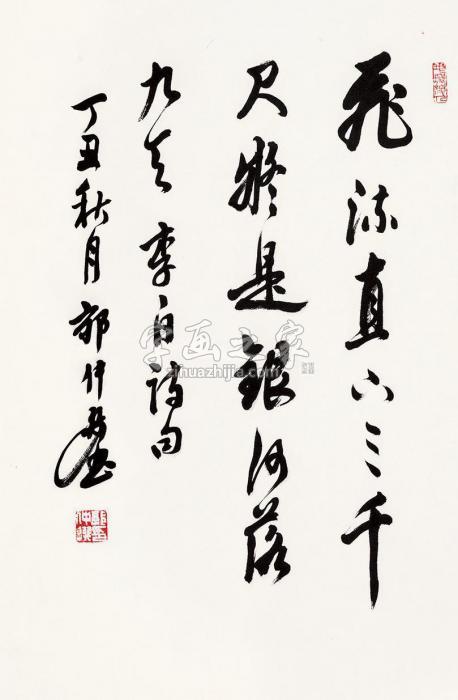 飛流直下三千
尺疑是銀河落
九天 李白詩句
丁丑秋月 郭仲選
字画之家
zihuazhijia.com